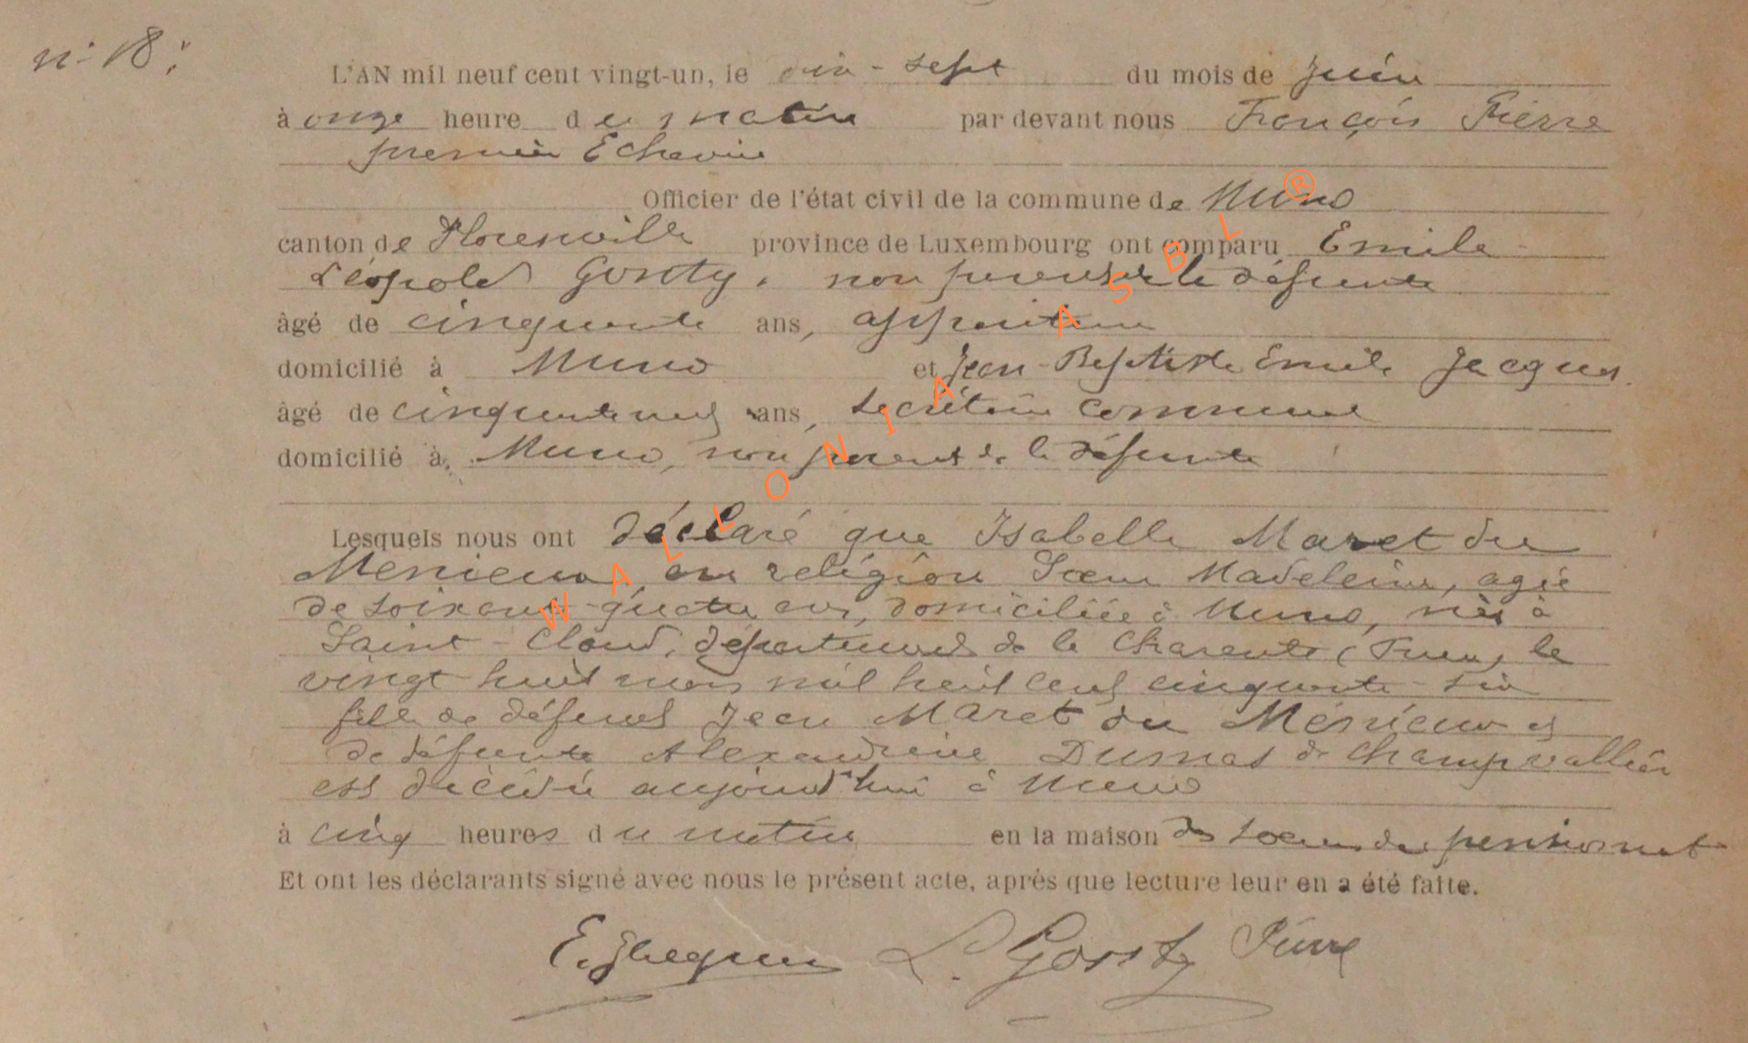 n° 18.
L'AN mil neuf cent vingt-un, le dix-sept du mois de Juin
à onze heure du matin par devant nous François Pierre
premier Echevin
Officier de l'état civil de la commune de Muno
canton de Florenville province de Luxembourg ont comparu Emile
Léopold Gonty, non parent de la défunte
âgé de cinquante ans,
domicilié à Muno et Jean-Baptiste Emile Jacques
âgé de cinquante neuf ans, secrétaire communal
domicilié à Muno, non parent de la défunte
Lesquels nous ont déclaré que Isabelle Maret du
Menieux en religion Sœur Madeleine, agée
de soixante-quatre ans, domiciliée à Muno, née à
Saint-Claud, département de la Charente (France) le
vingt huit mars mil huit cent cinquante-six
fille de défunt Jean Maret du Ménieux et
de défunte Alexandrine Dumas de Champvallier
est décédée aujourd'hui à Muno
à cinq heures du matin en la maison des sœurs du pensionnat
Et ont les déclarants signé avec nous le présent acte, après que lecture leur en a été faite.
E. Jacques L. Gonty Pierre
WALLONIA ASBL ®